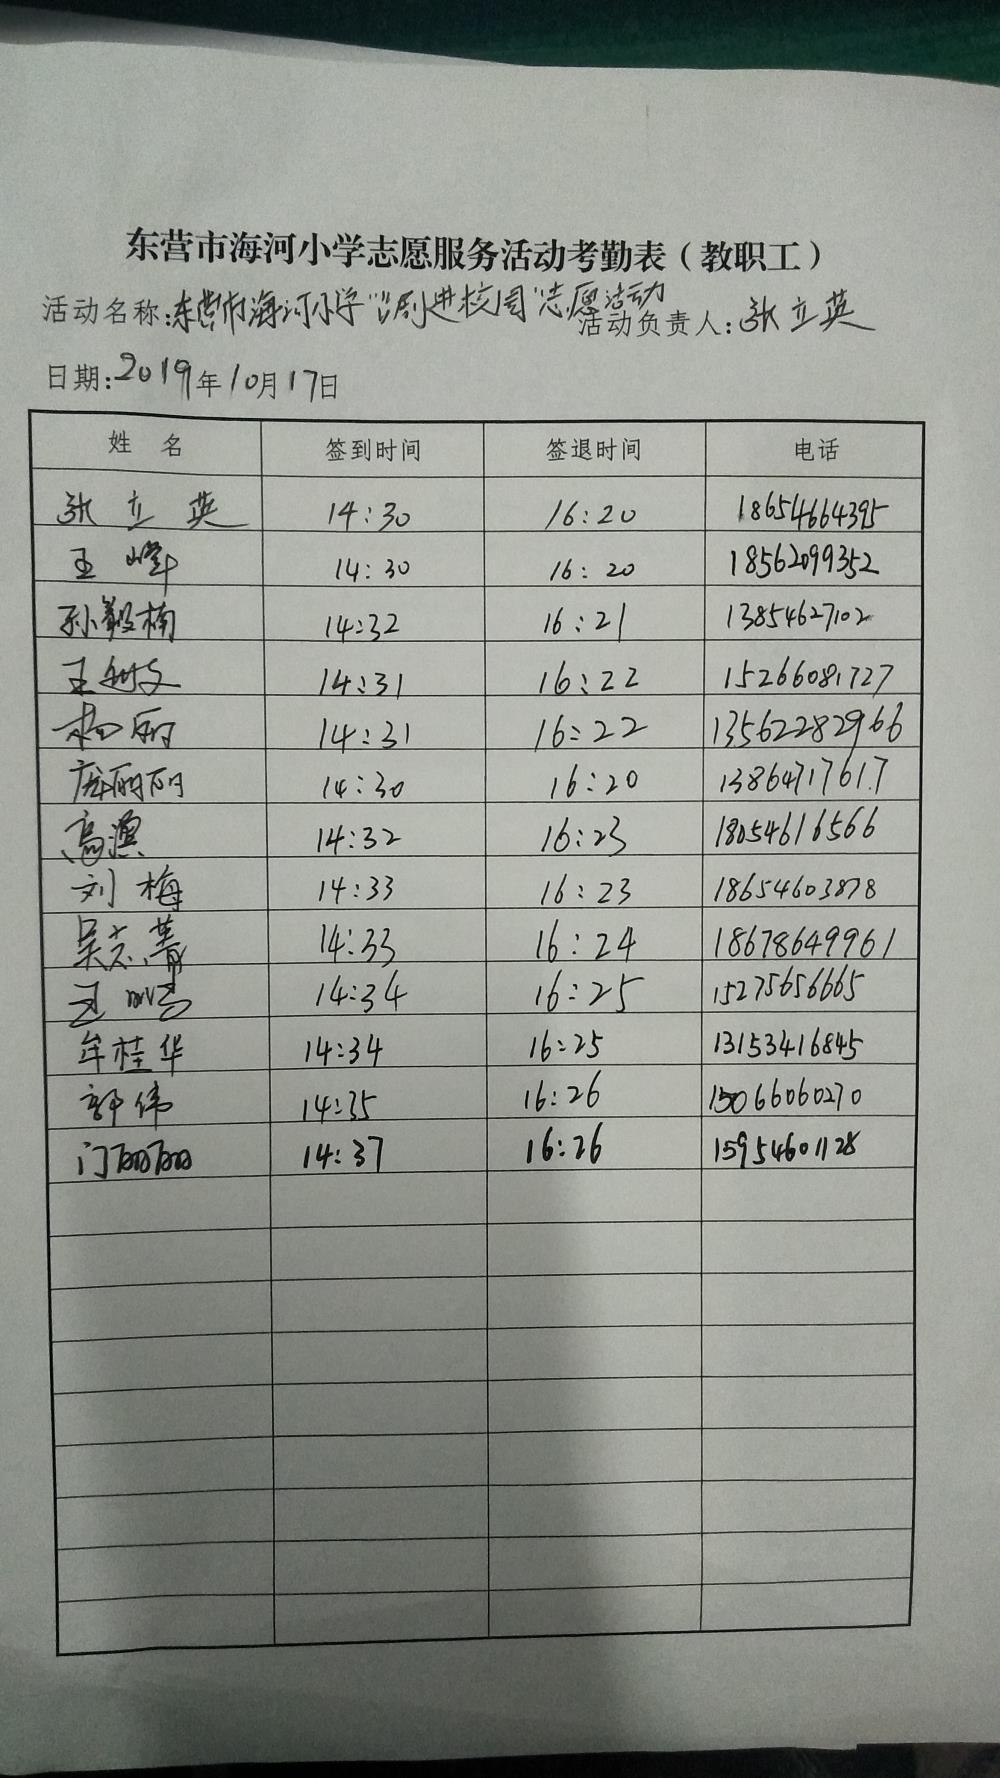 东营市海河小学志愿服务活动考勤表（教职工）
活动名称:东营市海河小学“剧进校园”志愿活动 活动负责人:张立英
日期:2019年10月17日
姓 名 签到时间 签退时间 电话
张立英 14:30 16:20 18654664395
王峰 14:30 16:20 18562099352
孙毅楠 14:32 16:21 13854627102
王利文 14:31 16:22 15266081727
杨丽 14:31 16:22 13562282966
庞丽丽 14:30 16:20 13864717617
高源 14:32 16:23 18054616566
刘梅 14:33 16:23 18654603878
吴志菁 14:33 16:24 18678649961
王 14:34 16:25 15275656665
牟桂华 14:34 16:25 13153416845
郭伟 14:35 16:26 15066060270
门丽丽 14:37 16:26 15954601128